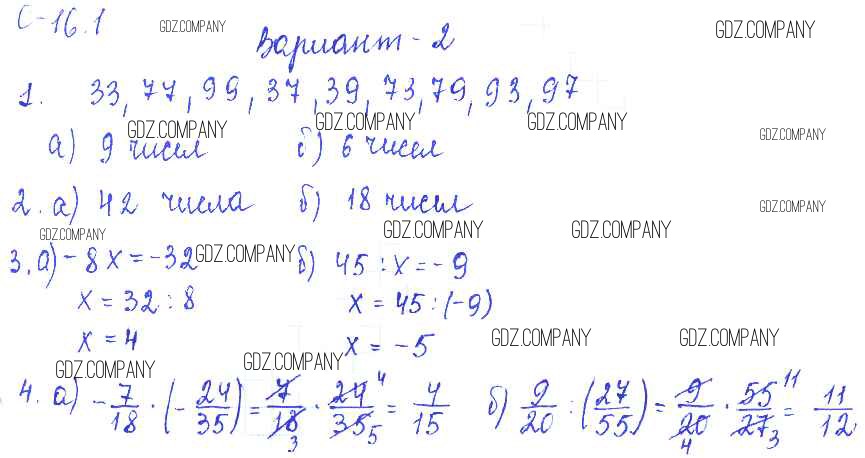 С-16.1 GDZ.COMPANY GDZ.COMPANY
Вариант-2
1. 33, 77, 99, 37, 39, 73, 79, 93, 97
GDZ.COMPANY GDZ.COMPANY GDZ.COMPANY GDZ.COMPANY
а) 9 чисел б) 6 чисел
2. а) 42 числа б) 18 чисел GDZ.COMPANY
GDZ.COMPANY GDZ.COMPANY GDZ.COMPANY
3. а) -8x = -32 GDZ.COMPANY б) 45 : x = -9
x = 32 : 8 x = 45 : (-9)
x = 4 x = -5 GDZ.COMPANY GDZ.COMPANY
GDZ.COMPANY GDZ.COMPANY
4. а) -7/18 · (-24/35) = 7/18 3 · 24 4/35 5 = 4/15 б) 9/20 : (27/55) = 9/20 4 · 55 11/27 3 = 11/12